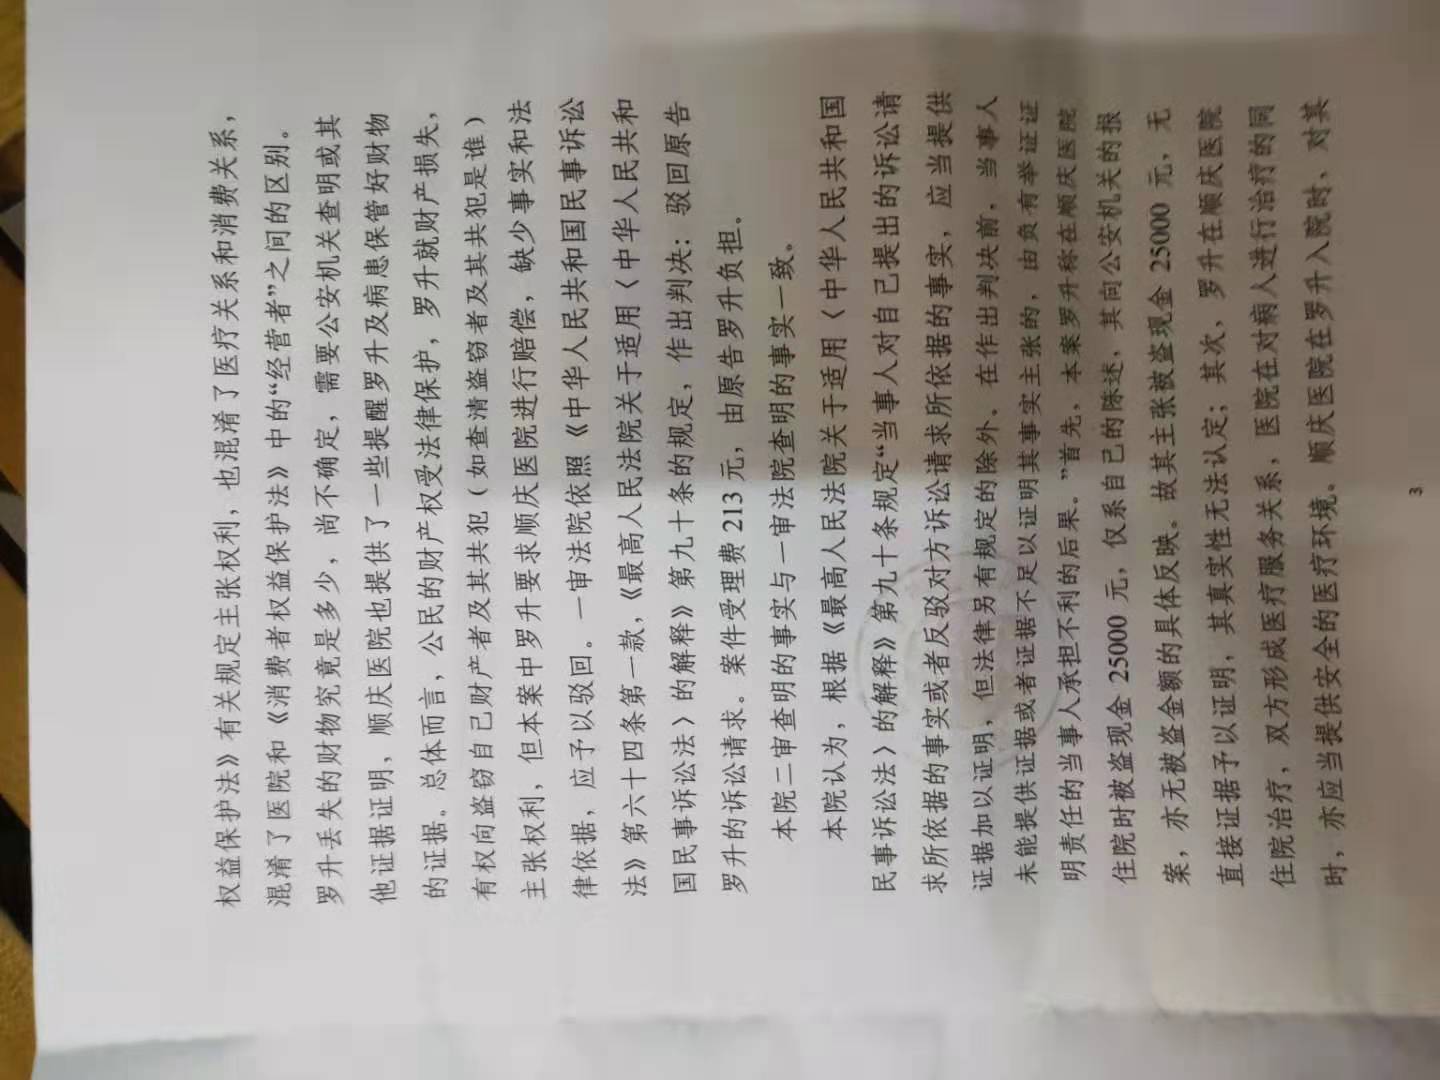 权益保护法》有关规定主张权利，也混淆了医疗关系和消费关系，
混淆了医院和《消费者权益保护法》中的“经营者”之间的区别。
罗升丢失的财物究竟是多少，尚不确定，需要公安机关查明或其
他证据证明，顺庆医院也提供了一些提醒罗升及病患保管好财物
的证据。总体而言，公民的财产权受法律保护，罗升就财产损失，
有权向盗窃自己财产者及其共犯（如查清盗窃者及其共犯是谁）
主张权利，但本案中罗升要求顺庆医院进行赔偿，缺少事实和法
律依据，应予以驳回。一审法院依照《中华人民共和国民事诉讼
法》第六十四条第一款，《最高人民法院关于适用〈中华人民共和
国民事诉讼法〉的解释》第九十条的规定，作出判决：驳回原告
罗升的诉讼请求。案件受理费213元，由原告罗升负担。
本院二审查明的事实与一审法院查明的事实一致。
本院认为，根据《最高人民法院关于适用〈中华人民共和国
民事诉讼法〉的解释》第九十条规定“当事人对自己提出的诉讼请
求所依据的事实或者反驳对方诉讼请求所依据的事实，应当提供
证据加以证明，但法律另有规定的除外。在作出判决前，当事人
未能提供证据或者证据不足以证明其事实主张的，由负有举证证
明责任的当事人承担不利的后果。”首先，本案罗升称在顺庆医院
住院时被盗现金25000元，仅系自己的陈述，其向公安机关的报
案，亦无被盗金额的具体反映。故其主张被盗现金25000元，无
直接证据予以证明，其真实性无法认定；其次，罗升在顺庆医院
住院治疗，双方形成医疗服务关系，医院在对病人进行治疗的同
时，亦应当提供安全的医疗环境。顺庆医院在罗升入院时，对其
3